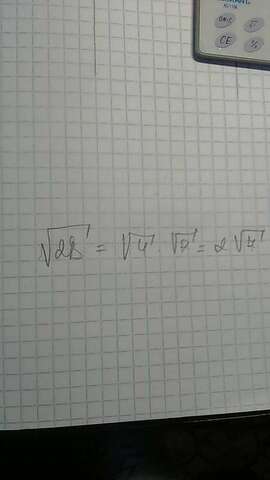 ON/C
CE
√28 = √4 · √7 = 2√7